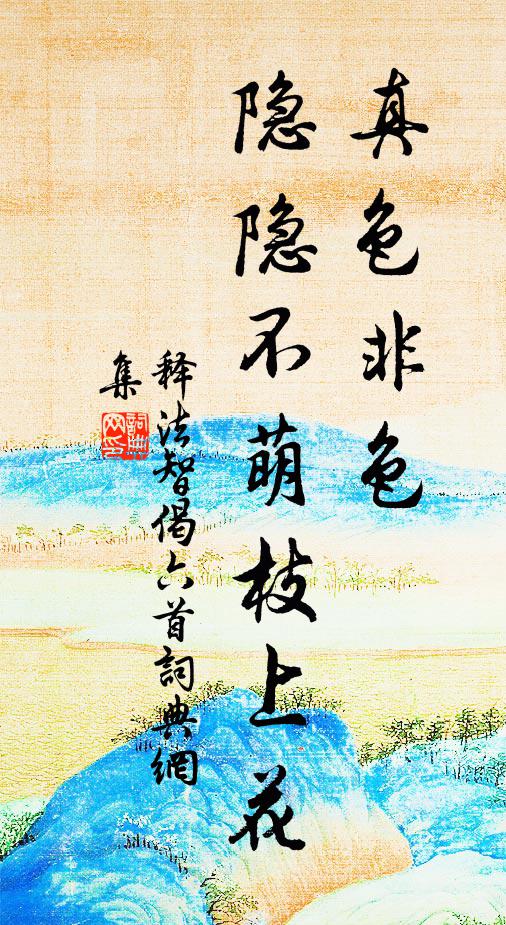 真色非色
隐隐不萌枝上花
释法智偈六首詞典網
集
詞典網印